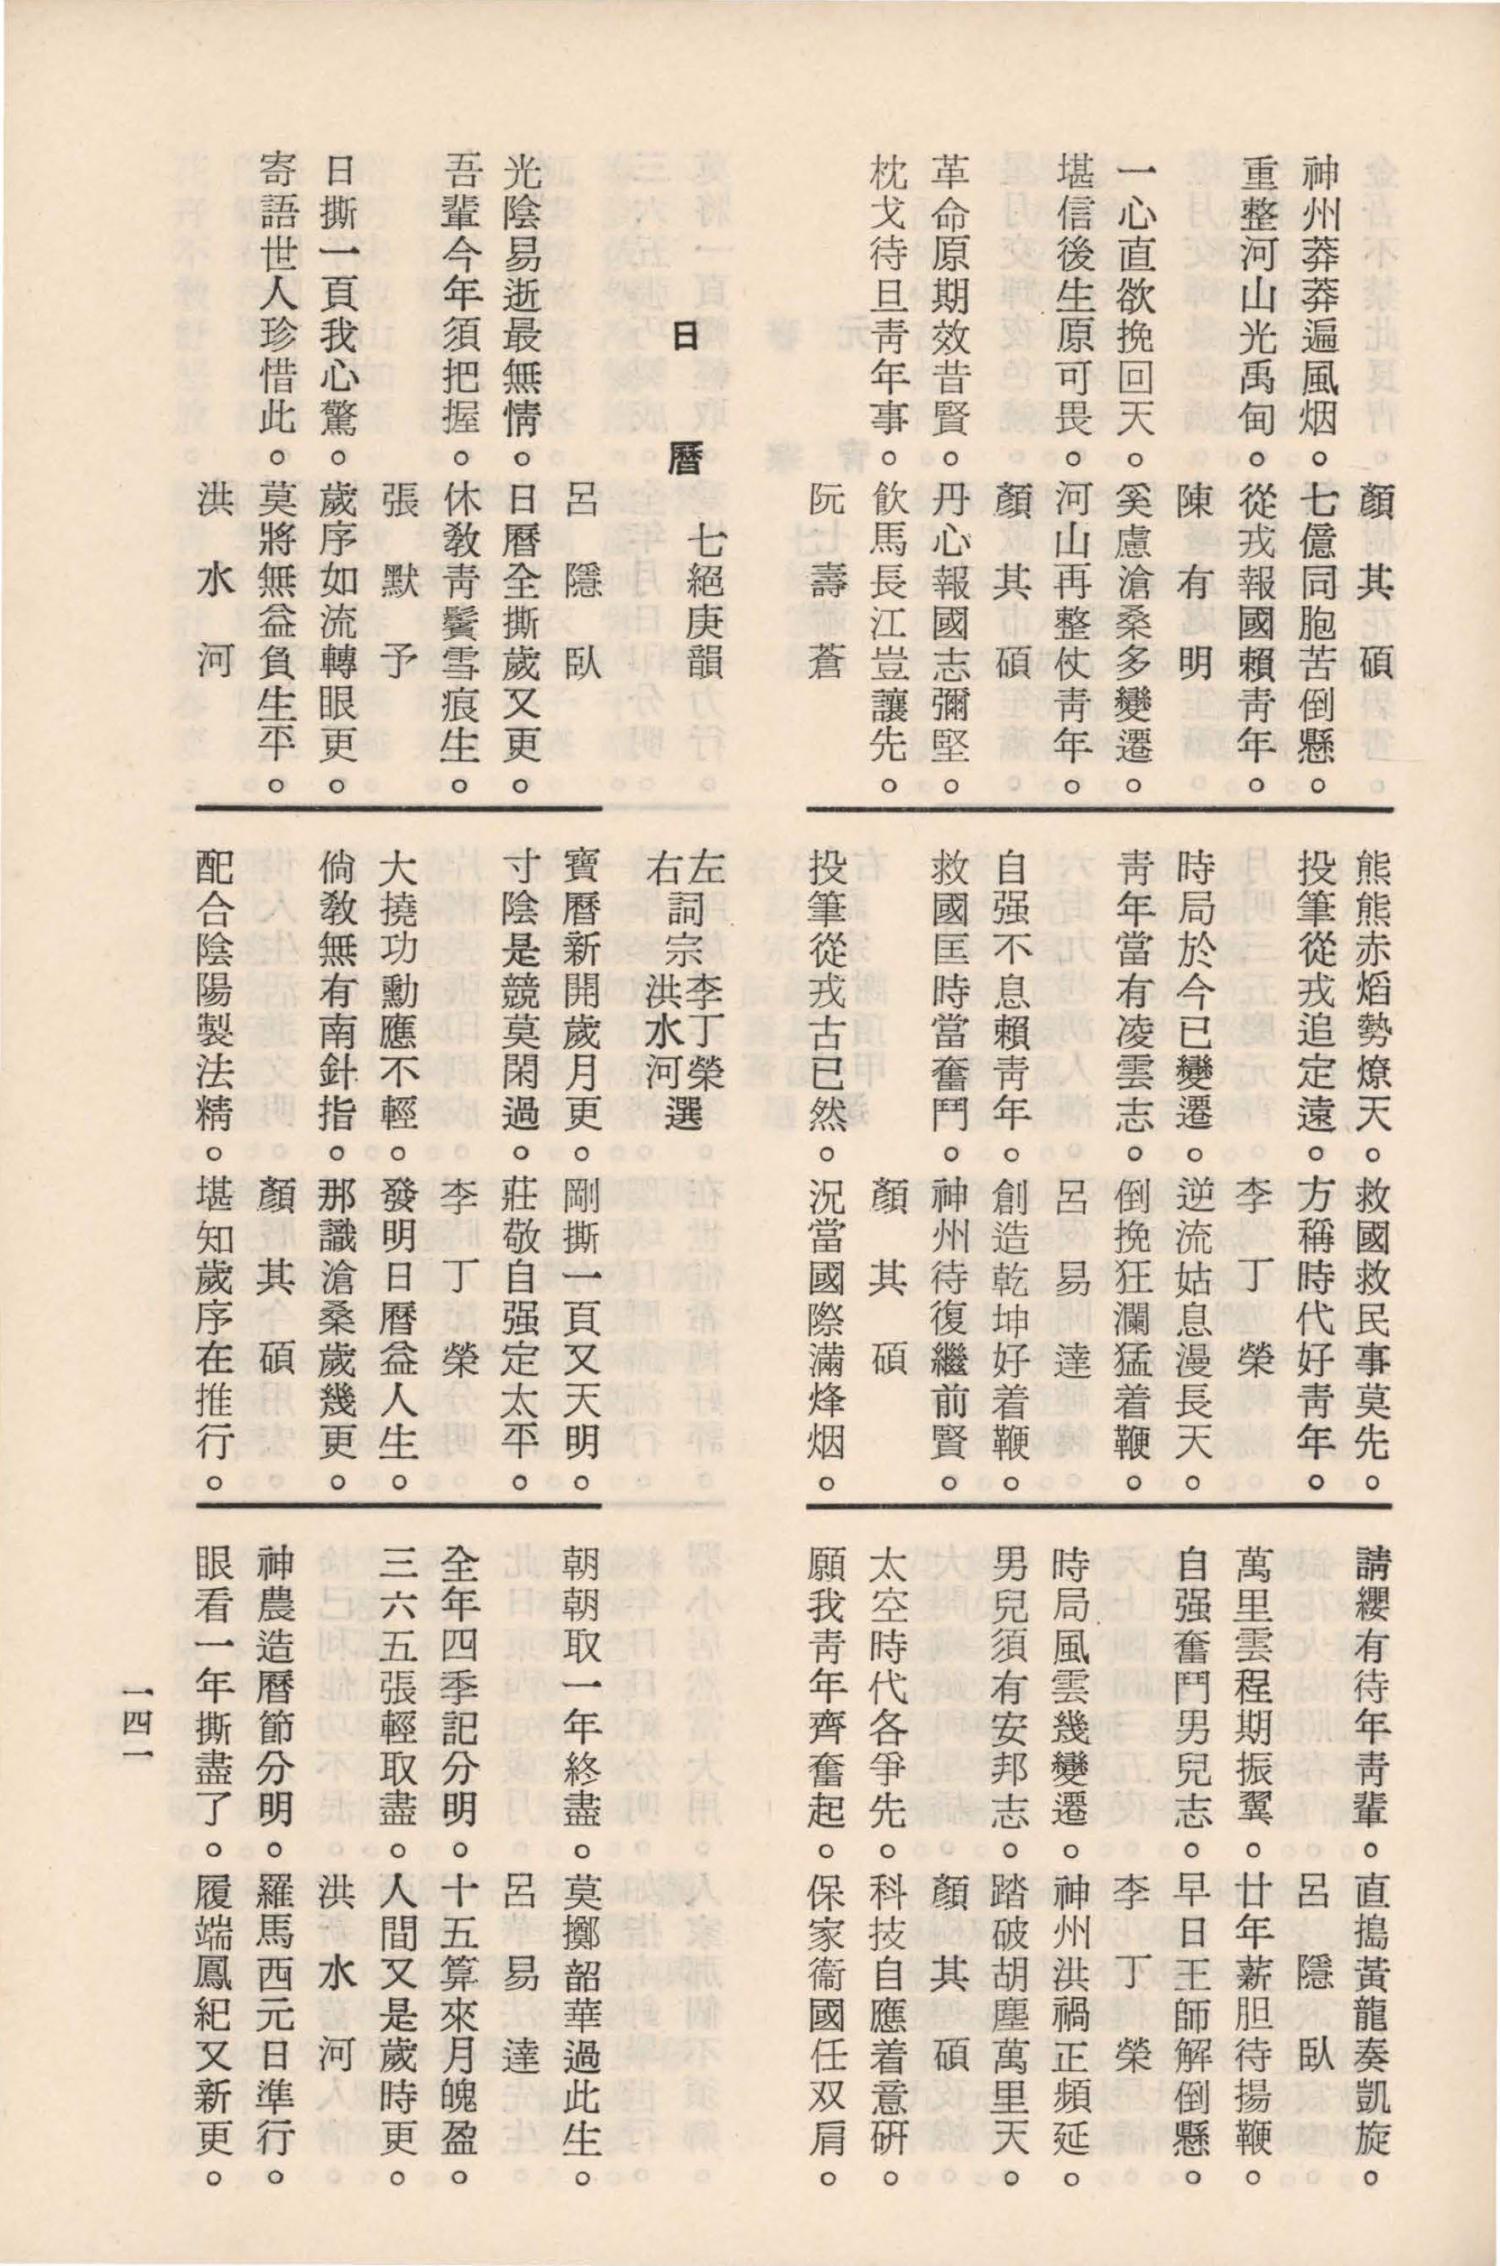 顏其碩
神州莽莽遍風烟。七億同胞苦倒懸。
重整河山光禹甸。從戎報國賴靑年。
陳有明
一心直欲挽回天。奚慮滄桑多變遷。
堪信後生原可畏。河山再整仗靑年。
顏其碩
革命原期效昔賢。丹心報國志彌堅。
枕戈待旦靑年事。飮馬長江豈讓先。
阮壽蒼
熊熊赤焰勢燎天。救國救民事莫先。
投筆從戎追定遠。方稱時代好靑年。
李丁榮
時局於今已變遷。逆流姑息漫長天。
靑年當有凌雲志。倒挽狂瀾猛着鞭。
呂易達
自强不息賴靑年。創造乾坤好着鞭。
救國匡時當奮鬥。神州待復繼前賢。
顏其碩
投筆從戎古已然。況當國際滿烽烟。
請纓有待年靑輩。直搗黃龍奏凱旋。
呂隱臥
萬里雲程期振翼。廿年薪胆待揚鞭。
自强奮鬥男兒志。早日王師解倒懸。
李丁榮
時局風雲幾變遷。神州洪禍正頻延。
男兒須有安邦志。踏破胡塵萬里天。
顏其碩
太空時代各爭先。科技自應着意硏。
願我靑年齊奮起。保家衞國任双肩。
日曆
七絕庚韻
左
右詞宗
李丁榮
洪水河選
呂隱臥
光陰易逝最無情。日曆全撕歲又更。
吾輩今年須把握。休敎靑鬢雪痕生。
張默予
日撕一頁我心驚。歲序如流轉眼更。
寄語世人珍惜此。莫將無益負生平。
洪水河
寶曆新開歲月更。剛撕一頁又天明。
寸陰是競莫閑過。莊敬自强定太平。
李丁榮
大撓功勳應不輕。發明日曆益人生。
倘敎無有南針指。那識滄桑歲幾更。
顏其碩
配合陰陽製法精。堪知歲序在推行。
朝朝取一年終盡。莫擲韶華過此生。
呂易達
全年四季記分明。十五算來月魄盈。
三六五張輕取盡。人間又是歲時更。
洪水河
神農造曆節分明。羅馬西元日準行。
眼看一年撕盡了。履端鳳紀又新更。
一四一